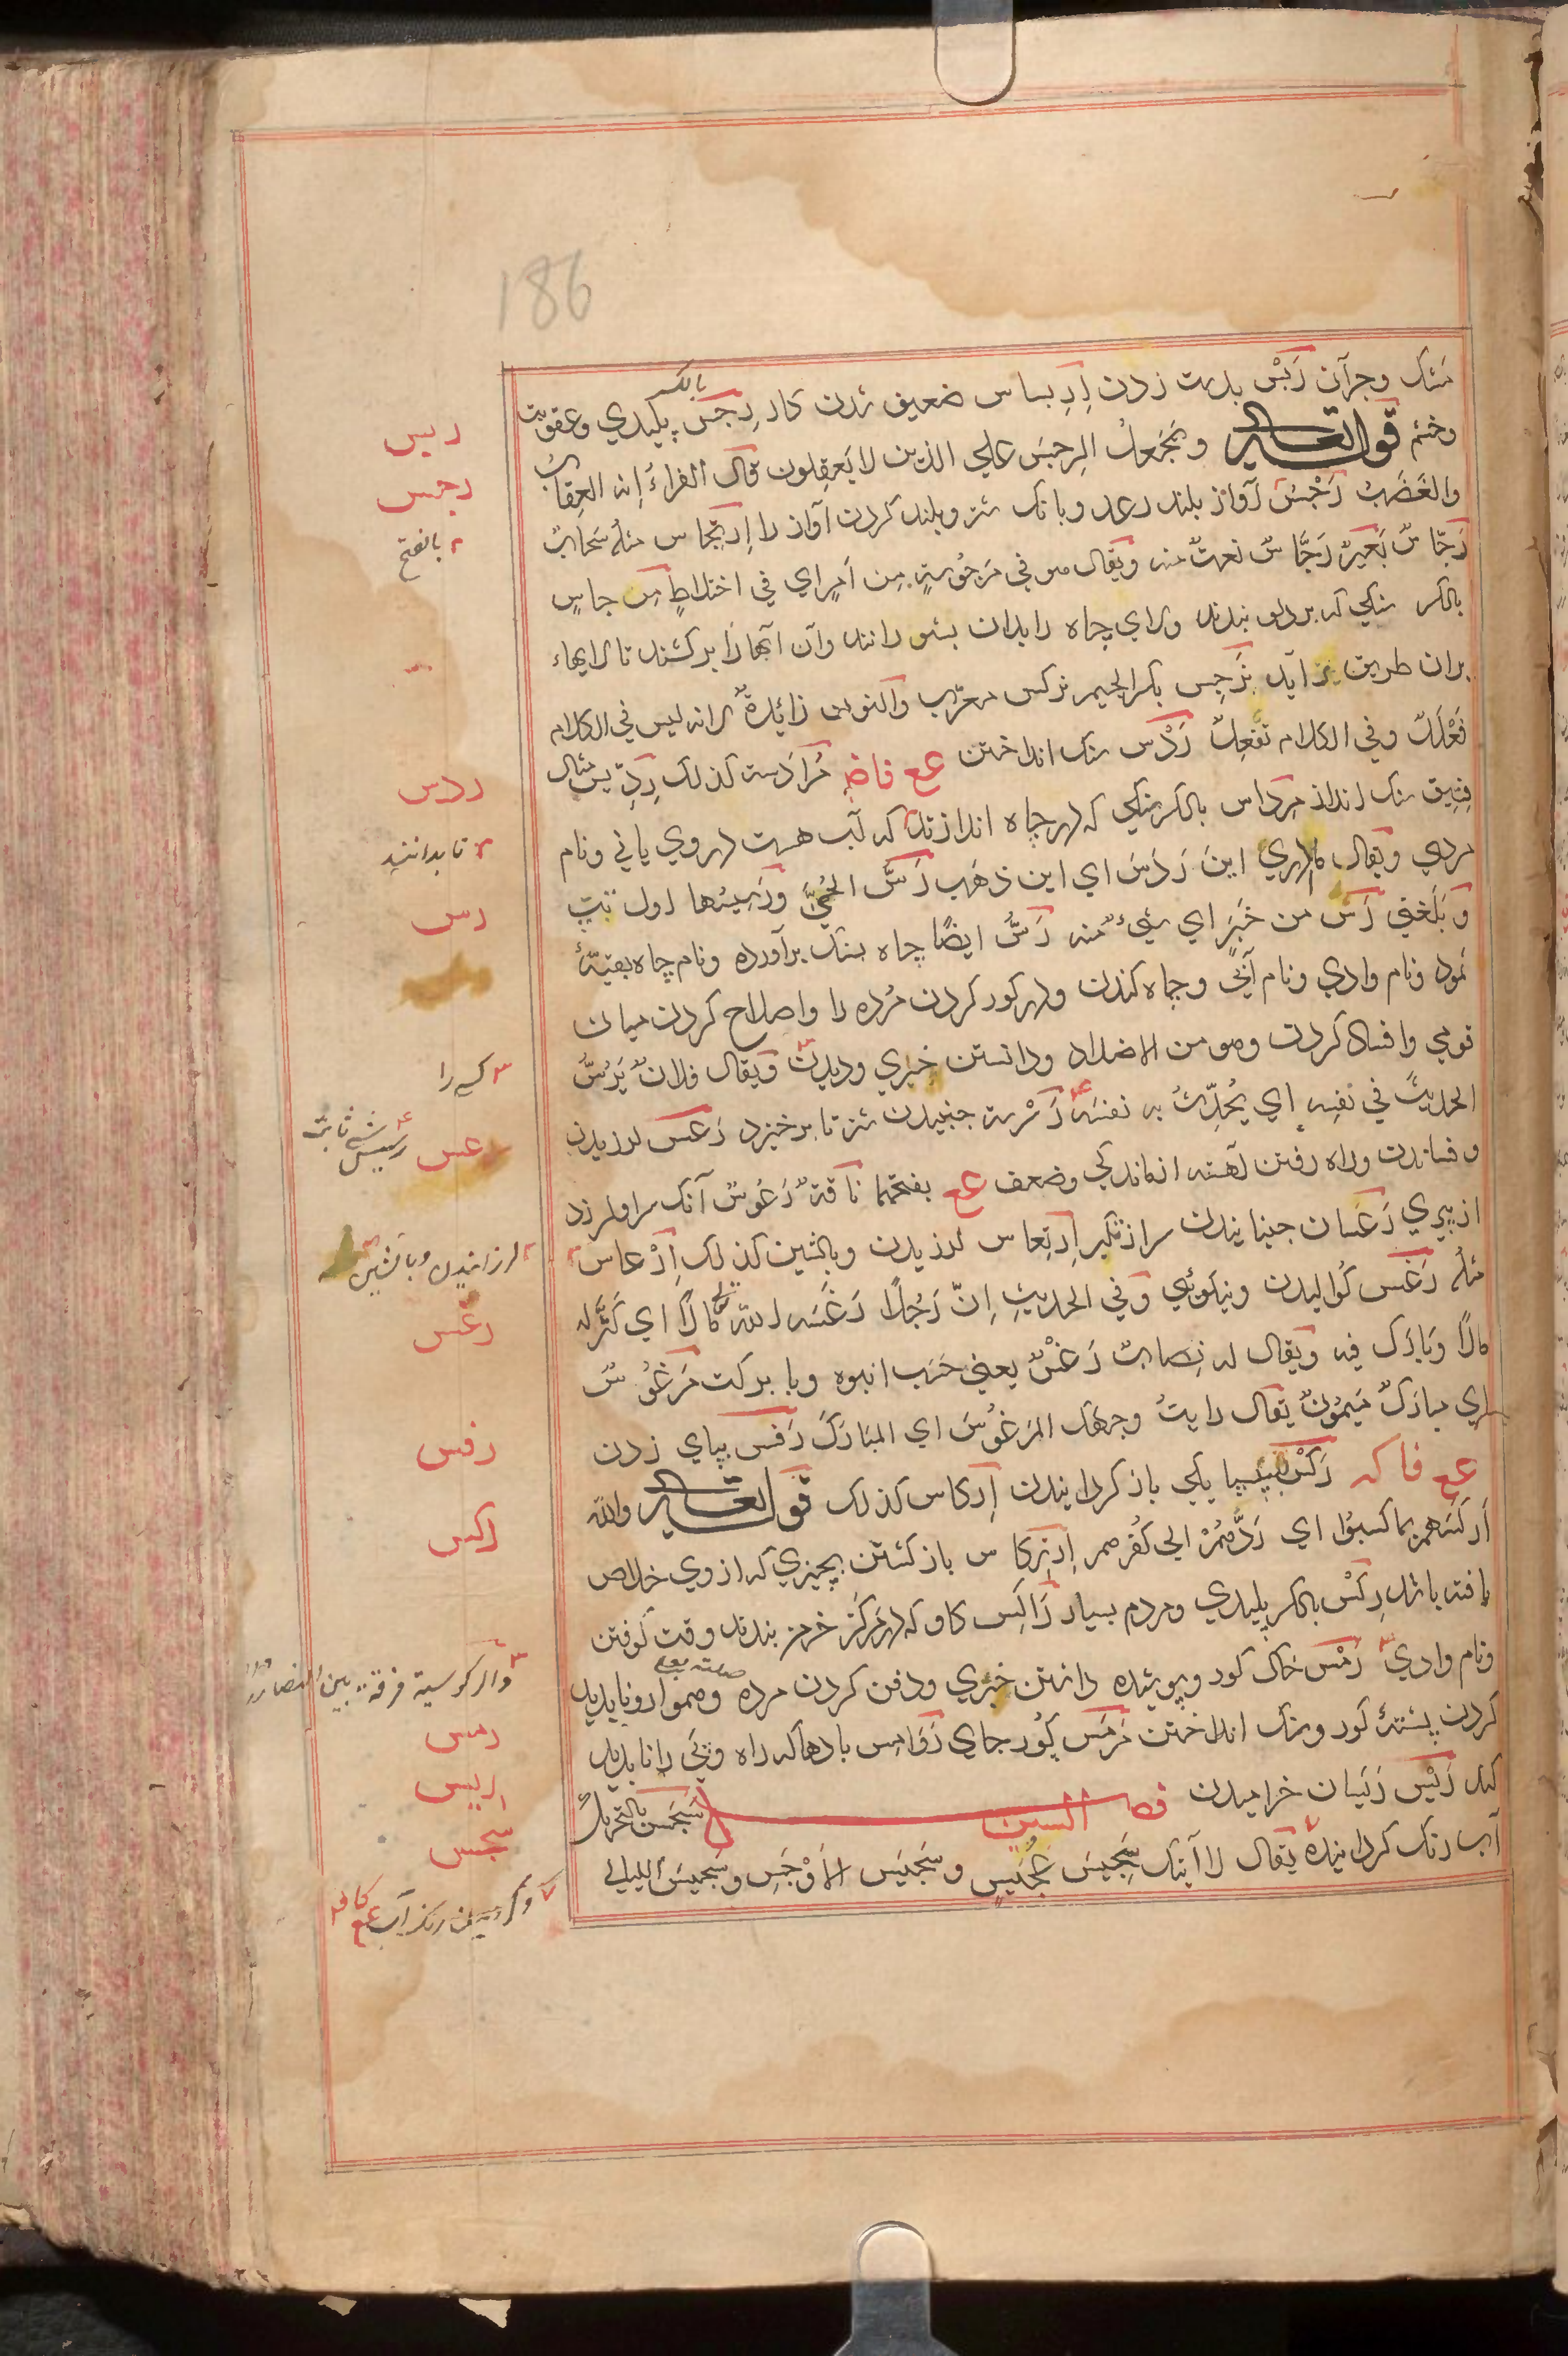 186
سنگ وجزآن رَبْس بدست زدن اِرِبساس ضعیف شدن کار رِجس بالکسر پلیدی وعقوبت
وخشم قوله تعالی وَیَجْعَلُ الرِجسَ علی الذین لا یَعقِلون قال الفراءُ اِنه العِقابُ
والغَضَبُ رَجْسٌ آواز بلند رعد وبانک شتر وبلند کردن آواز را اِرتِجاس مثلُه سَحَابٌ
رَجّاسٌ بَعیرٌ رَجّاسٌ نعتٌ منه ویُقال هو فی مَرجُوسةٍ مِن اَمرٍ ای فی اختلاطٍ مِرجاسٍ
بالکسر سنگی که بر دلو بندند ودرای چاه را بدان بشورانند وآن آبها را بر کشند تا لایهاء
بران طریق بر آید نَرجِس بکسر الجیم نرکس معرّب والنون زائدةٌ لانه لیس فی الکلام
فَعْلَلٌ وفی الکلام نَفعِلٌ رَدْس سنگ انداختن عع فاض مُرادَسة کذلک رِدّیس مثال
فِسِّیق سنگ انداز مِرداس بالکسر سنگی که در چاه اندازند تا که آب هست در وی یا نی ونام
مردی ویقال ما ادری اینَ رَدَسَ ای این ذهَب رَسُّ الحُمّی ورَسِیسُها اول تب
وَبَلَغنی رَسٌّ من خَبَر ای شیءٌ منه رَسٌّ ایضًا چاه بسنگ برآورده ونام چاه بقیّهٔ
ثمود ونام وادی ونام آبی وچاه کندن ودر کور کردن مُرده را واصلاح کردن میان
قومی وافساد کردن وهو من الاضداد ودانستن خبری ودیدن ویقال فلانٌ یَرُسُّ
الحدیثَ فی نفسِه ای یُحدِّثُ به نفسَه رَسْرسة جنبیدن شتر تا بر خیزد رَعس لرزیدن
وفشاندن وراه رفتن آهسته از ماندگی وضعف عع بفتحهما ناقةٌ رَعُوسٌ آنک سر او لرزد
از پیری رَعَسان جنبانیدن سر از تکبر اِرتِعاس لرزیدن وبالشین کذلک اِرْعاس
مثلُه رَغس کوالیدن ونیکوئی وفی الحدیثِ اِنّ رَجُلًا رَغَسَه اللهُ تعالی مالًا ای کَثَّرَ له
مالًا وَبارَک فیه ویقال له نِصابٌ رَغْسٌ یعنی حَسَب انبوه وبا برکت مَرغُوسٌ
ای مبارَکٌ مَیمُونٌ یقال رایتُ وجهَک المَرغُوسَ ای المبَارَکَ رَفس بپای زدن
عع فاکه رَکْس باز گردانیدن اِرکاس کذلک قوله تعالی والله
اَرکَسَهم بما کسبُوا ای رَدَّهُمْ الی کُفرهم اِرتِکاس باز کشتن بچیزی که از وی خلاص
یافته باشد رِکْس بالکسر پلیدی ومردم بسیار رَاکِس کاو که در مَرکَز خرمن بندند وقت کوفتن
ونام وادی رَمْس خاک کور وپوشیده دانستن خبری ودفن کردن مرده وهموار ونا پدید
کردن پشتهٔ کور وسنگ انداختن مَرمَس کُور جای رَوَامِس بادها که راه وپَی را نا پدید
کند رَیْس رَیَسان خرامیدن فصل السین سَجَس بالتحریک
آب رنک کردانیده یُقال لا آتیک سَجِیسَ عُجَیسٍ وسَجیسَ الاَوْجَسِ وسَجِیسَ اللیالی
ربس
رجس
بالفتح
ردس
تا بدانند
رس
کسی را
رعس
رسیس شی ثابت
لرزانیدن وبالشین
رغس
رفس
رکس
والرکوسیة فرقة بین النصاری
رمس
ریس
سجس
عع